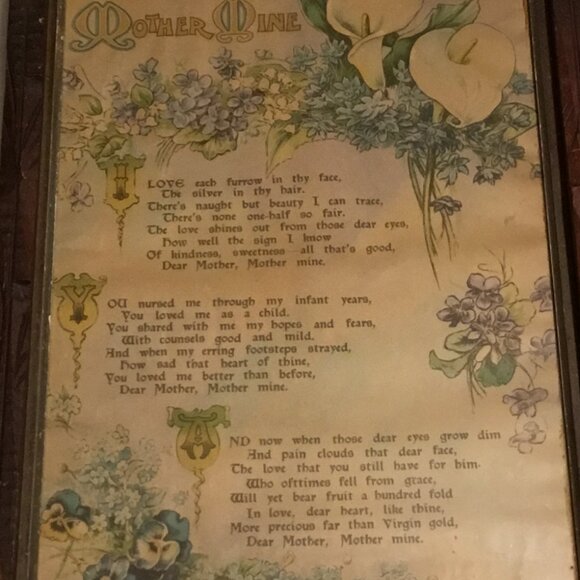 MOTHER MINE
I LOVE each furrow in thy face,
The silver in thy hair.
There's naught but beauty I can trace,
There's none one-half so fair.
The love shines out from those dear eyes,
How well the sign I know
Of kindness, sweetness all that's good,
Dear Mother, Mother mine.
YOU nursed me through my infant years,
You loved me as a child.
You shared with me my hopes and fears,
With counsels good and mild.
And when my erring footsteps strayed,
How sad that heart of thine,
You loved me better than before,
Dear Mother, Mother mine.
AND now when those dear eyes grow dim
And pain clouds that dear face,
The love that you still have for him
Who ofttimes fell from grace,
Will yet bear fruit a hundred fold
In love, dear heart, like thine,
More precious far than Virgin gold,
Dear Mother, Mother mine.